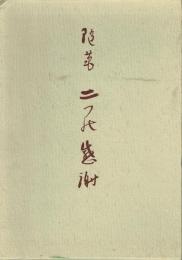 随筆 二つの感謝